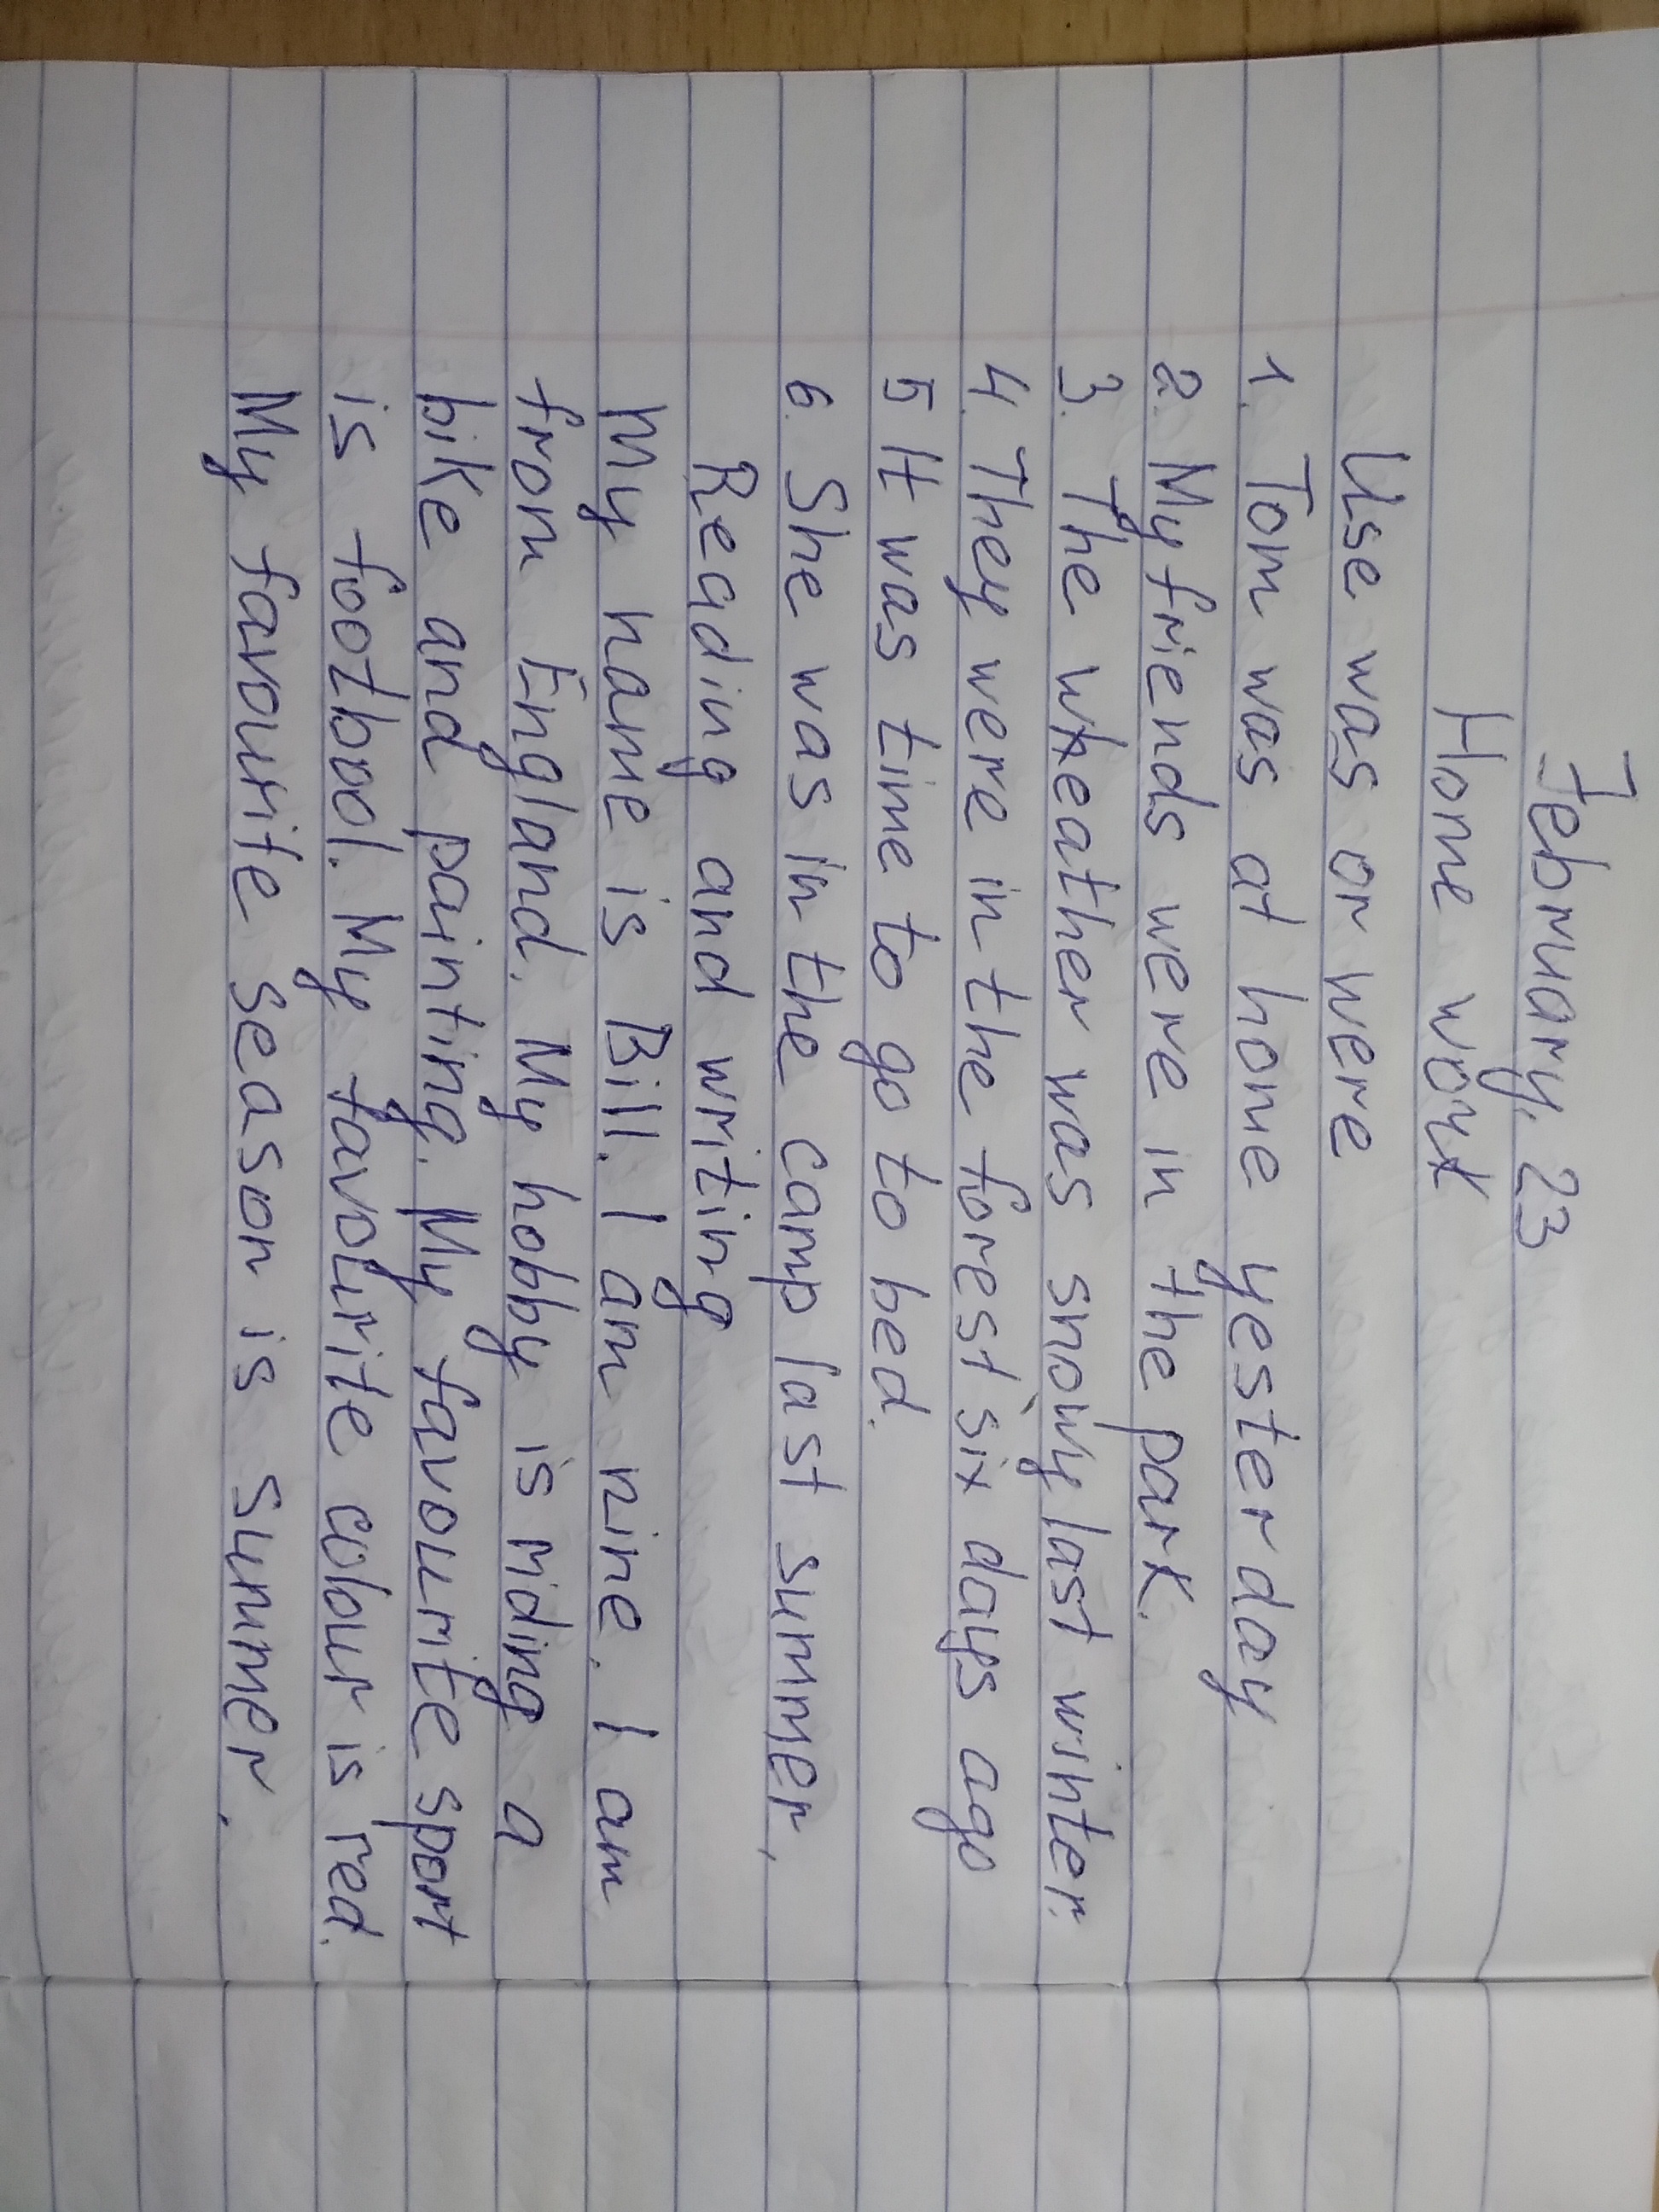 February, 23
Home work
Use was or were
1. Tom was at home yesterday
2. My friends were in the park.
3. The weather was snowy last winter.
4. They were in the forest six days ago
5 It was time to go to bed.
6. She was in the camp last summer.
Reading and writing
My name is Bill. I am nine. I am
from England. My hobby is riding a
bike and painting. My favourite sport
is footbool. My favourite colour is red.
My favourite season is summer.